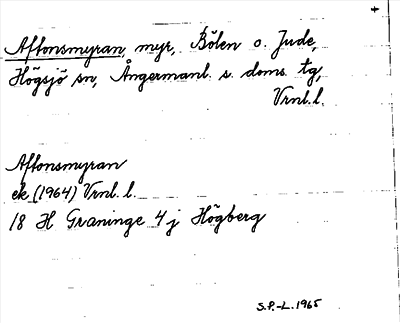 Aftonsmyran, myr, Bölen o. Jude,
Högsjö sn, Ångermanl. s. doms. tg,
Vrnl. l.
Aftonsmyran
ek (1964) Vrnl. l.
18 H Graninge 4 j Högberg
S.P.-L. 1965